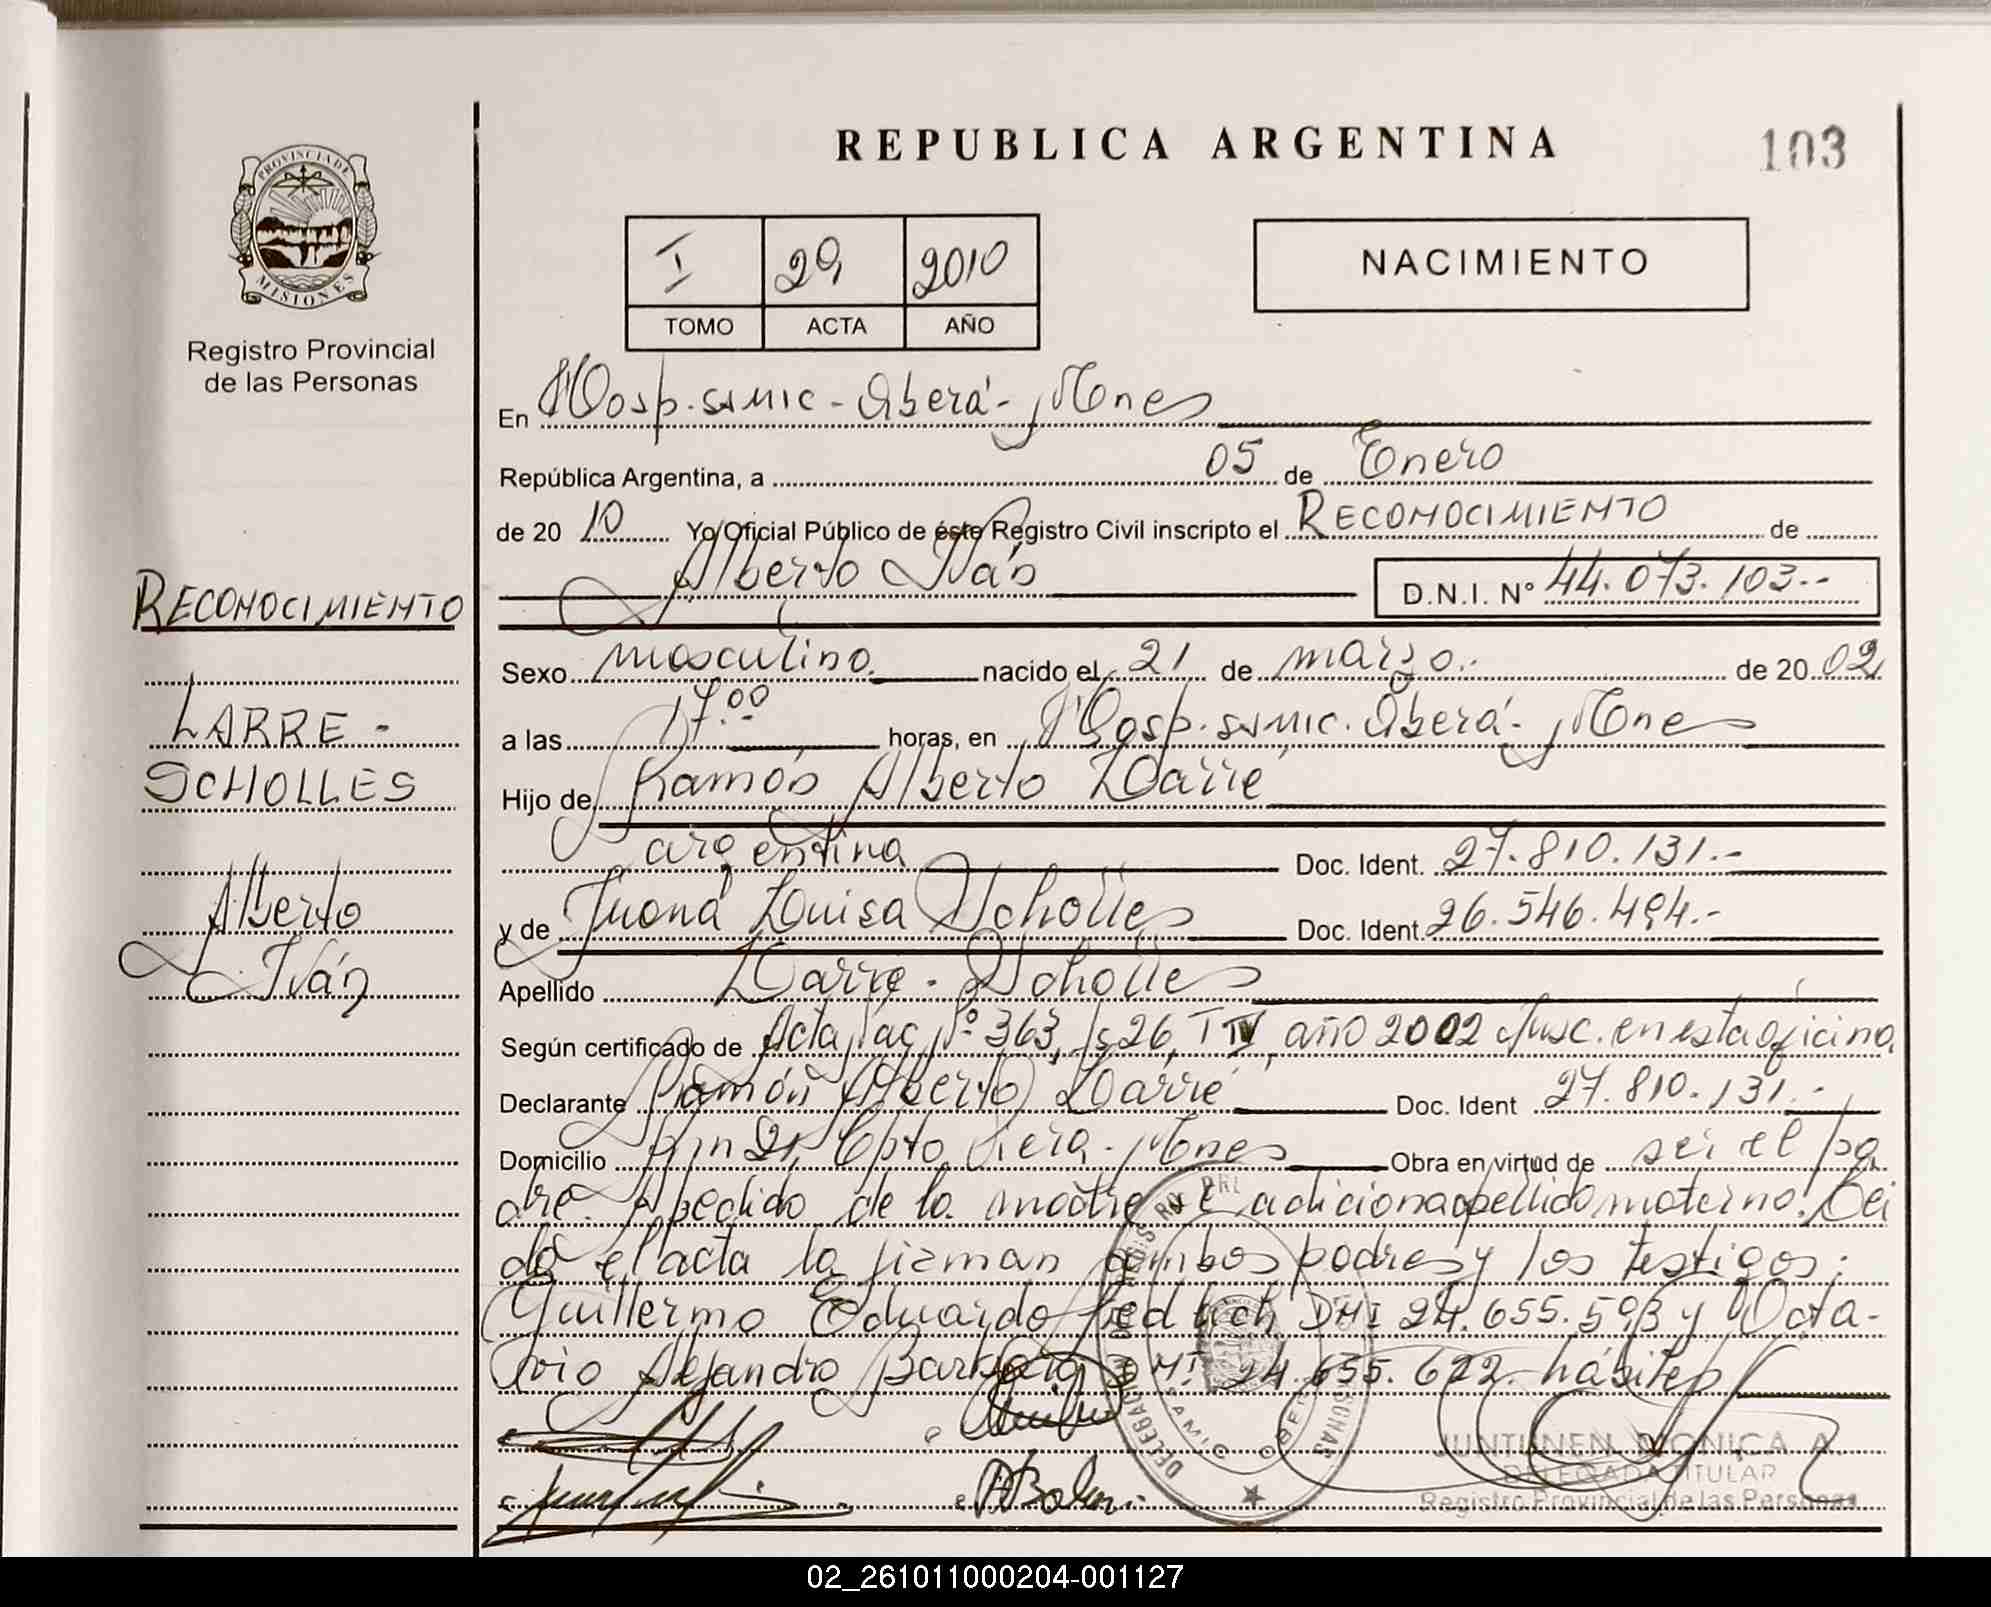 REPUBLICA ARGENTINA
103
PROVINCIA DE
MISIONES
Registro Provincial
de las Personas
I 29 2010
TOMO ACTA AÑO
NACIMIENTO
En Hosp. SAMIC - Oberá - Mnes
República Argentina, a 05 de Enero
de 20 10 Yo Oficial Público de éste Registro Civil inscripto el RECONOCIMIENTO de
Alberto Iván
D.N.I. Nº 44.073.103.--
RECONOCIMIENTO
LARRE -
SCHOLLES
Alberto
Iván
Sexo masculino. nacido el 21 de marzo.. de 20 02
a las 17.00 horas, en Hosp. SAMIC. Oberá - Mnes
Hijo de Ramón Alberto Larre
argentina Doc. Ident. 27.810.131.-
y de Juana Luisa Scholles Doc. Ident. 26.546.494.-
Apellido Larre - Scholles
Según certificado de Acta Nac Nº 363, Fs 26, T IV, año 2002 Insc. en esta oficina
Declarante Ramón Alberto Larre Doc. Ident 27.810.131.-
Domicilio Mnes Obra en virtud de ser el pa
dre. A pedido de la madre se adiciona apellido materno. Lei
da el acta la firman ambos padres y los testigos:
Guillermo Eduardo DNI 24.655.593 y Octa-
vio Alejandro DNI 24.655.622 hábiles
DELEGACION
SAMIC OBERA
JUNTUNEN MONICA A.
DELEGADA TITULAR
Registro Provincial de las Personas
02_261011000204-001127